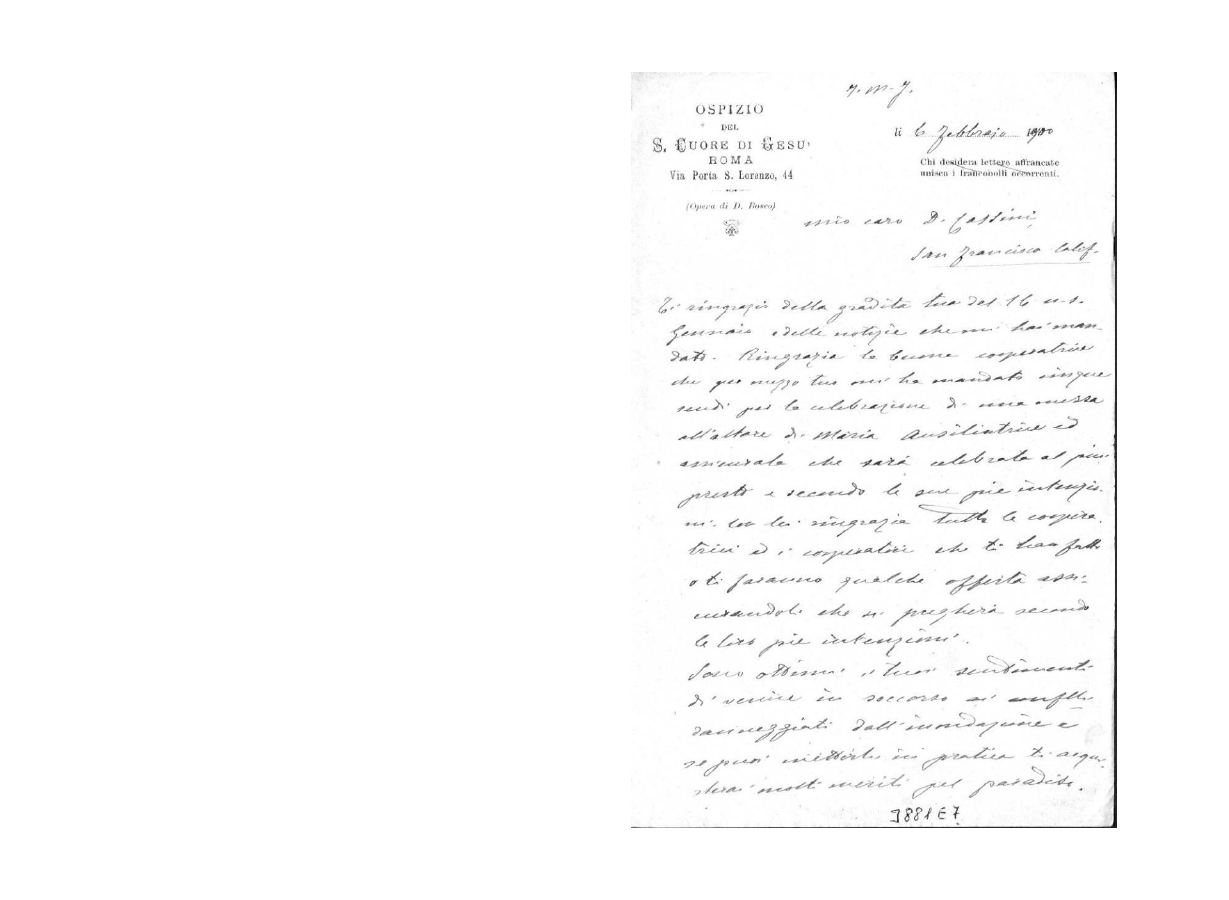 J. M. J.
OSPIZIO
DEL
S. CUORE DI GESU'
ROMA
Via Porta S. Lorenzo, 44
(Opera di D. Bosco)
li 6 Febbraio 1900
Chi desidera lettere affrancate
unisca i francobolli occorrenti.
mio caro D. Cassini,
San Francisco Calif.
Ti ringrazio della gradita tua del 16 u.s.
Gennaio e delle notizie che mi hai man-
dato. Ringrazia la buona cooperatrice
che per mezzo tuo mi ha mandato cinque
scudi per la celebrazione di una messa
all'altare di Maria Ausiliatrice ed
assicurala che sarà celebrata al più
presto e secondo le sue pie intenzio-
ni. Con lei ringrazia tutte le coopera-
trici ed i cooperatori che ti han fatto
o ti faranno qualche offerta assi-
curandoli che si pregherà secondo
le loro pie intenzioni.
Sono ottimi i tuoi sentimenti
di venire in soccorso ai
danneggiati dall'inondazione e
se puoi metterli in pratica ti acqui-
sterai molti meriti pel paradiso.
J881E7